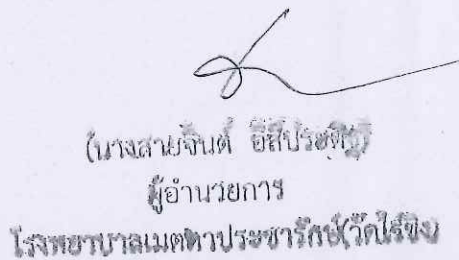 (นางสายจินต์ อิสีประดิฐ)
ผู้อำนวยการ
โรงพยาบาลเมตตาประชารักษ์(วัดไร่ขิง)